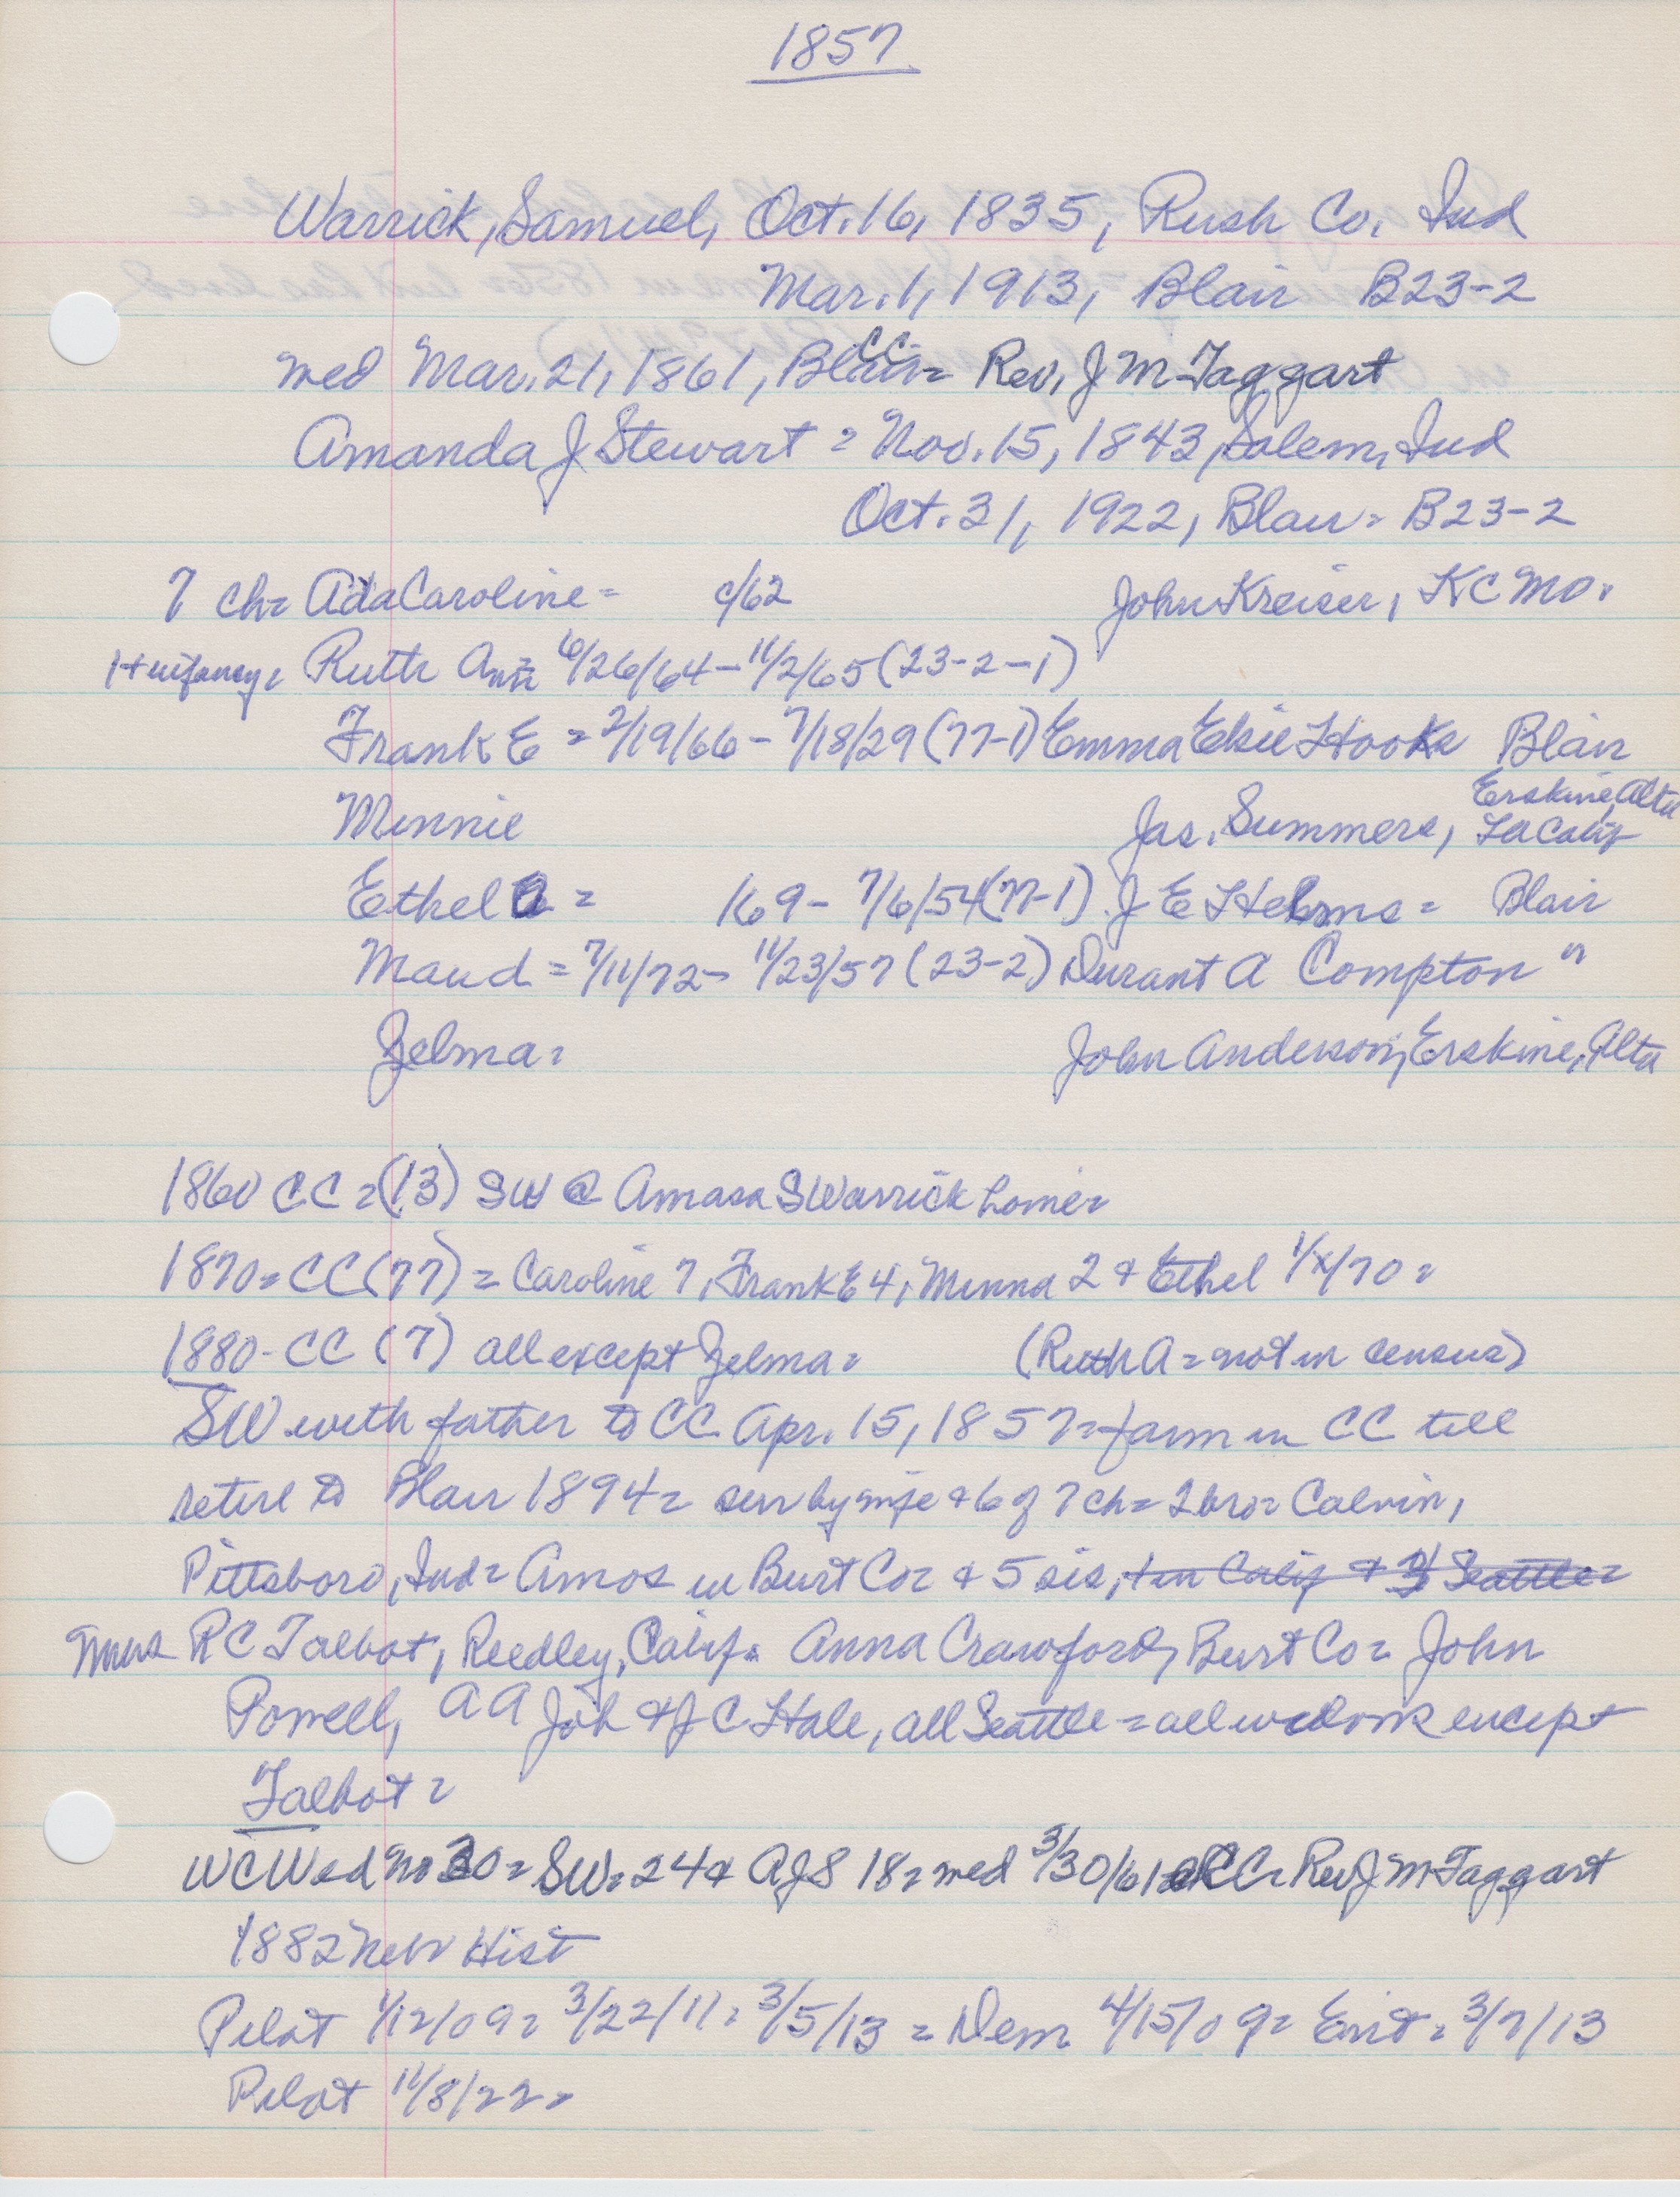 1857
Warrick, Samuel, Oct. 16, 1835, Rush Co. Ind
Mar. 1, 1913, Blair B23-2
CC
med Mar. 21, 1861, Blair = Rev. J M Taggart
Amanda J Stewart = Nov. 15, 1843, Salem, Ind
Oct. 31, 1922, Blair = B23-2
7 ch = Ada Caroline = c/62 John Kreiser, KC Mo.
1 + infancy = Ruth Ann = 6/26/64 - 11/2/65 (23-2-1)
Frank E = 2/19/66 - 7/18/29 (77-1) Emma Elsie Hooks Blair
Erskine, Alta
Minnie Jas. Summers, LA Calif
Ethel = 1869 - 7/6/54 (77-1) J E Helms = Blair
Maud = 7/11/72 - 11/23/57 (23-2) Durant A Compton "
Zelma = John Anderson, Erskine, Alta
1860 CC = (13) SW @ Amasa S Warrick home =
1870 = CC (77) = Caroline 7, Frank E 4, Minna 2 & Ethel 1/x/70 =
1880 - CC (7) all except Zelma = (Ruth A = not in census)
SW with father to CC Apr. 15, 1857 = farm in CC till
retire to Blair 1894 = surv by wife & 6 of 7 ch = 2 bro = Calvin,
Pittsboro, Ind = Amos in Burt Co = & 5 sis, 1 in Calif & 3 Seattle =
Mmes R C Talbot, Reedley, Calif. Anna Crawford, Burt Co = John
Powell, A A Job & J C Hale, all Seattle = all widows except
Talbot =
WC Wed No 30 = SW = 24 & AJS 18 = med 3/30/61 CC = Rev J M Taggart
1882 Neb Hist
Pilot 1/12/09 = 3/22/11 = 3/5/13 = Dem 4/15/09 = Ent = 3/7/13
Pilot 11/8/22 =